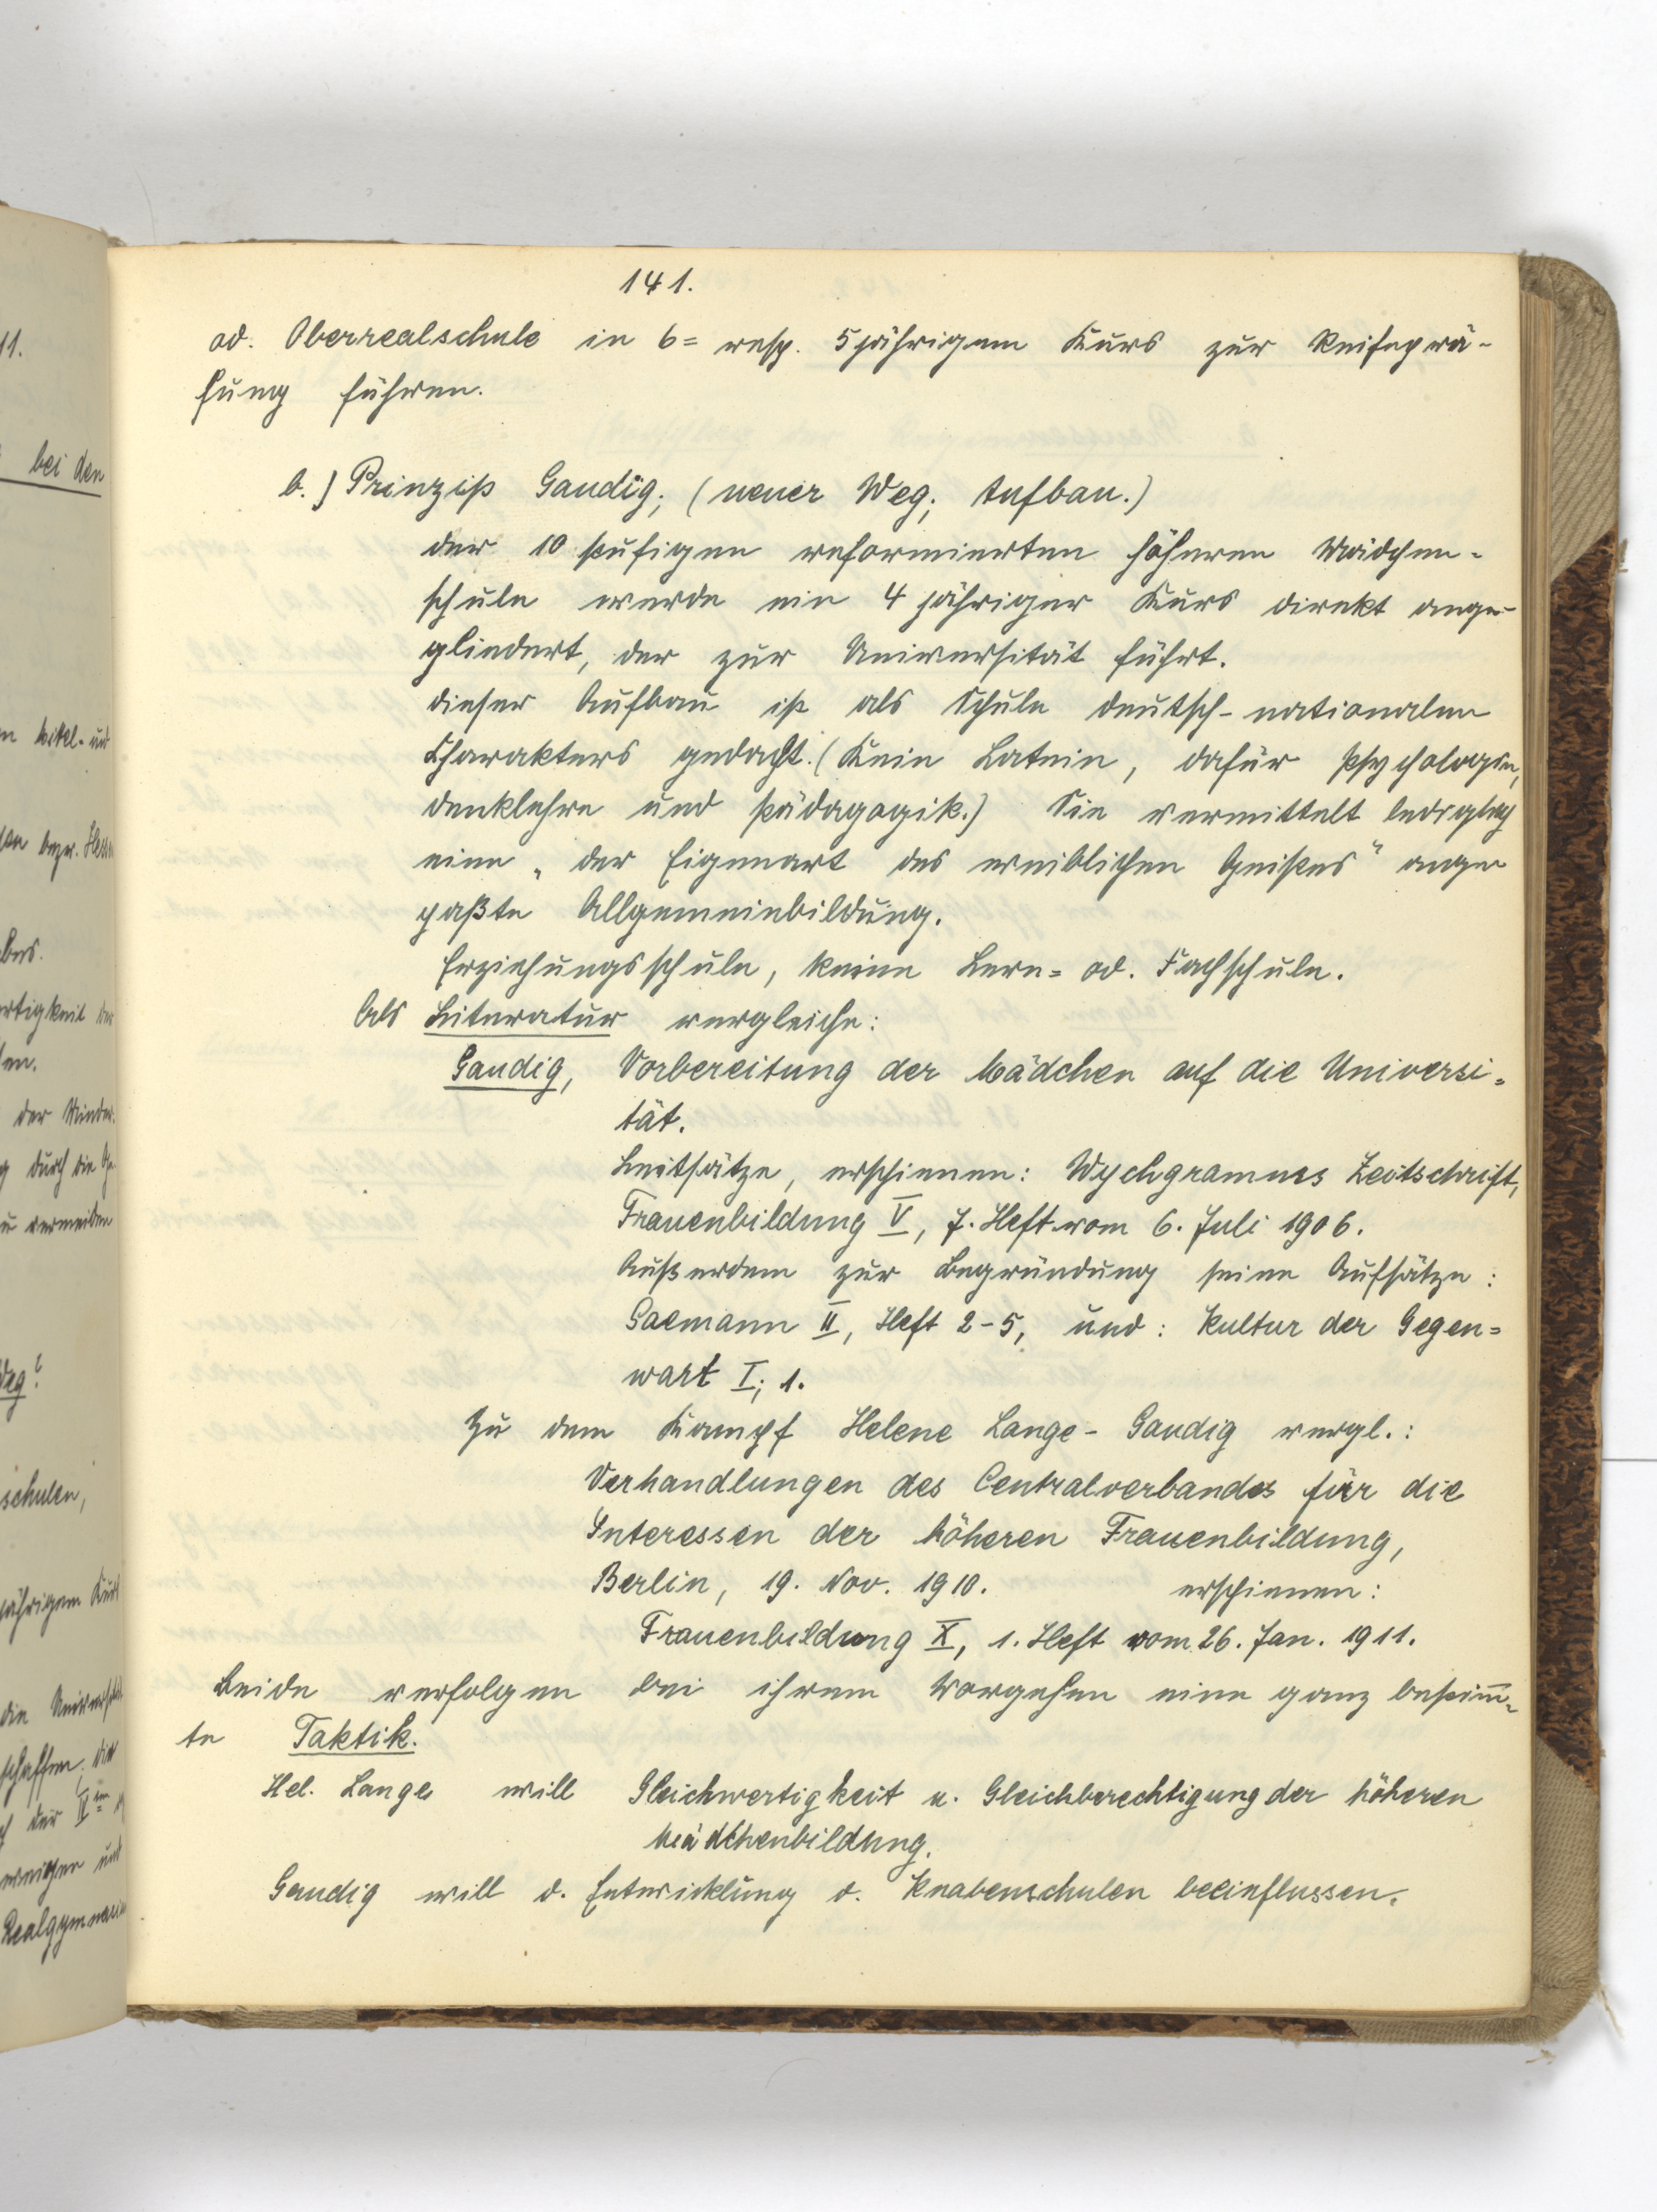 141.
od. Oberrealschule in 6= resp. 5jährigem Kurs zur Reifeprü-
fung führen.
b.) Prinzip Gaudig; (neuer Weg; Aufbau.)
der 10 stufigen reformierten höheren Mädchen-
schule werde ein 4 jähriger Kurs direkt ange-
gliedert, der zur Universität führt.
dieser Aufbau ist als Schule deutsch-nationalen
Charakters gedacht. (Kein Latein, dafür Psychologie,
denklehre und Pädagogik.) Sie vermittelt lediglich
eine „der Eigenart des weiblichen Geistes" ange
paßte Allgemeinbildung.
Erziehungsschule, keine Lern= od. Fachschule.
Als Literatur vergleiche:
Gaudig, Vorbereitung der Mädchen auf die Universi=
tät.
Leitsätze, erschienen: Wychgrammes Zeitschrift,
Frauenbildung V, 7. Heft vom 6. Juli 1906.
Außerdem zur Begründung seine Aufsätze:
Saemann II, Heft 2-5, und: Kultur der Gegen=
wart I; 1.
Zu dem Kampf Helene Lange - Gaudig vergl.:
Verhandlungen des Centralverbandes für die
Interessen der höheren Frauenbildung,
Berlin, 19. Nov. 1910. erschienen:
Frauenbildung X, 1. Heft vom 26. Jan. 1911.
Beide verfolgen bei ihrem Vorgehen eine ganz bestim̅-
te Taktik.
Hel. Lange will Gleichwertigkeit u. Gleichberechtigung der höheren
Mädchenbildung.
Gaudig will d. Entwicklung d. Knabenschulen beeinflussen.
11.
bei den
bezw.
der Minder-
durch die
zu vermeiden
Weg?
schulen,
jährigem Kurs
die
schaffen; die
der II
und